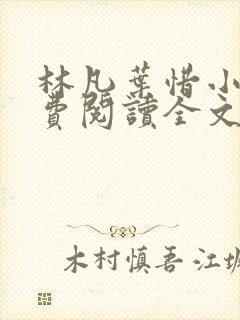 林凡葉惜小
費閱讀全文
木村慎吾 江坂